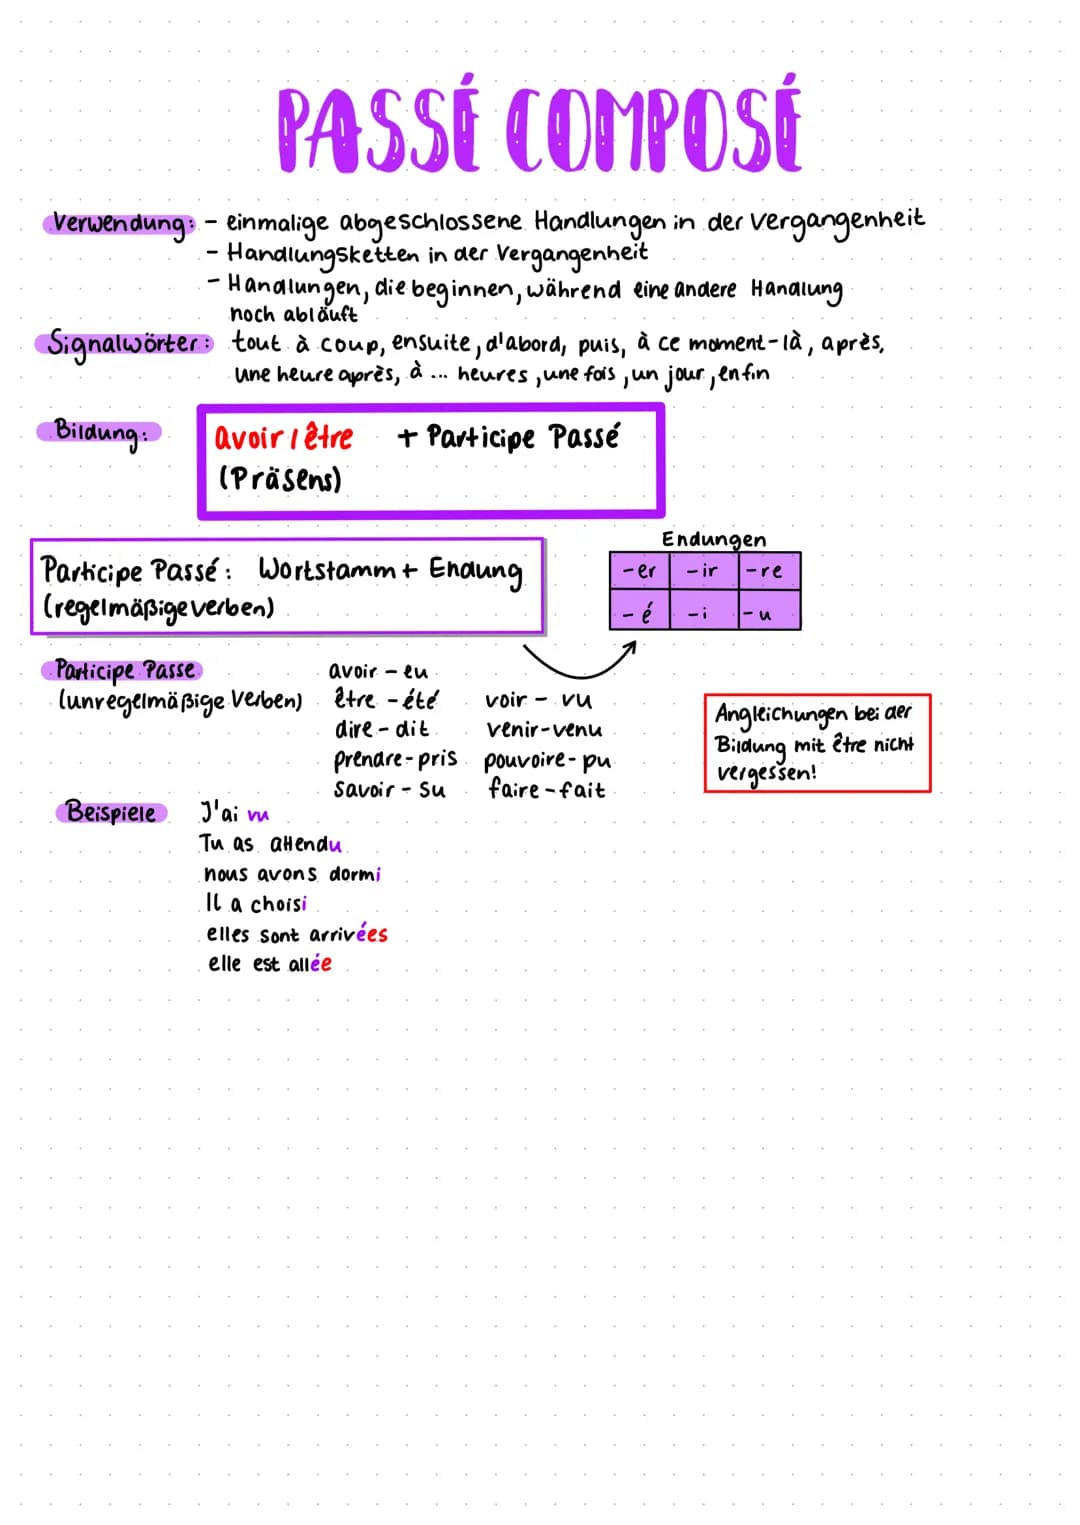 PASSÉ COMPOSÉ
Verwendung: - einmalige abgeschlossene Handlungen in der Vergangenheit
- Handlungsketten in der Vergangenheit
- Handlungen, die beginnen, während eine andere Handlung
noch abläuft
Signalwörter: tout à coup, ensuite, d'abord, puis, à ce moment-là, après,
une heure après, à ... heures, une fois, un jour, enfin
Bildung: avoir / être + Participe Passé
(Präsens)
Participe Passé: Wortstamm + Endung
(regelmäßige verben)
Endungen
-er -ir -re
-é -i -u
Participe Passe
(unregelmäßige Verben)
avoir - eu
être - été
dire - dit
prendre - pris
savoir - su
voir - vu
venir - venu
pouvoire - pu
faire - fait
Angleichungen bei der
Bildung mit être nicht
vergessen!
Beispiele J'ai vu
Tu as attendu
nous avons dormi
Il a choisi
elles sont arrivées
elle est allée